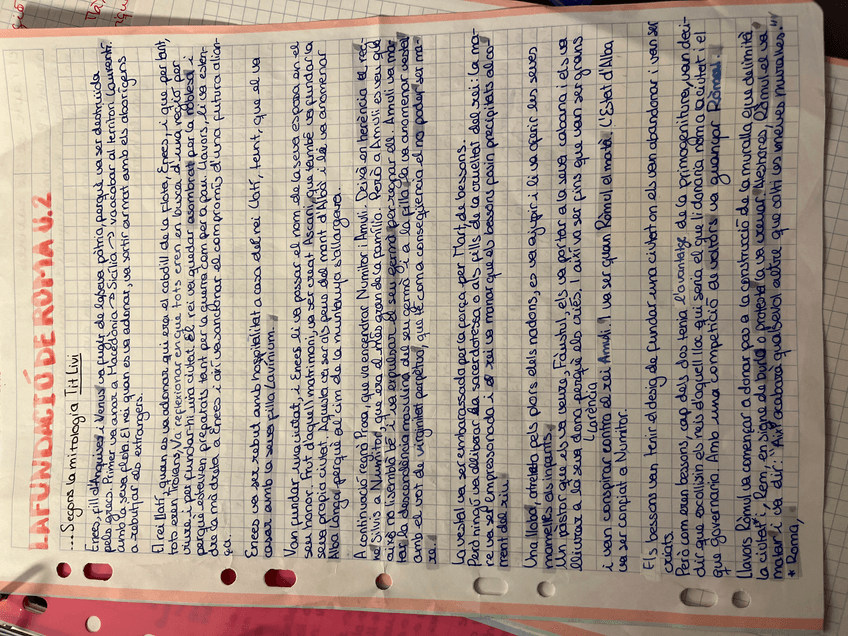 LA FUNDACIÓ DE ROMA U.2
... Segons la mitologia Tit Livi
Enees, fill d'Anquises i Venus va fugir de la seva pàtria, perquè va ser destruïda
pels grecs. Primer va anar a Macedònia → Sicília → va acabar al territori Laurentí,
amb la seva flota. El rei quan es va adonar, va sortir armat amb els aborígens
a rebutjar els extrangers.
El rei Llatí, quan es va adonar qui era el cabdill de la flota, Enees, i que per tant,
tots eren troians, va reflexionar en que tots eren en busca d'una regió per
viure, i per fundar-hi una ciutat. El rei va quedar asombrat per la noblesa i
perquè estaven preparats tant per la guerra com per a pau. Llavors, li va esten-
dre la mà dreta a Enees i així van donar el compromís d'una futura alian-
ça.
Enees va ser rebut amb hospitalitat a casa del rei Llatí, tennt, que el va
casar amb la seva filla Lavínium.
Van fundar una ciutat, i Enees li va posar el nom de la seva esposa en el
seu honor. Fruit d'aquell matrimoni, va ser creat Ascani, que també va fundar la
seva pròpia ciutat. Aquesta va ser als peus del mont d'Albà i la va anomenar
Alba Longa perquè pel cim de la muntanya s'allargava.
A continuació regnà Proca, que va encendrar Numitor i Amuli. Deixà en herència el reg-
ne Silvis a Numitor, que era el més gran de la família. Però a Amuli es veu que
això no li semblà bé i va expulsar el seu germà per regnar ell. Amuli va ma-
tar la descendència masculina del seu germà i a la filla la va anomenar vestal
amb el vot de virginitat perpètua, que té com a conseqüència el no poder ser ma-
re.
La vestal va ser embarassada per la força per Mart, de bessons.
Però ningú va alliberar la sacerdotessa o als fills de la crueltat del rei: la ma-
re va ser empressonada i el rei va manar que els bessons fossin precipitats al co-
rrent del riu.
Una lloba, atreta pels plors dels nadons, es va ajupir i li va oferir les seves
mamelles als infants.
Un pastor que els va veure, Fàustul, els va portar a la seva cabana i els va
lliurar a la seva dona perquè els criés. I així va ser fins que van ser grans
Larència
i van conspirar contra el rei Amuli. I va ser quan Ròmul el matà. L'Estat d'Alba
va ser confiat a Numitor.
Els bessons van tenir el desig de fundar una ciutat on els van abandonar i van ser
criats.
Però com eren bessons, cap dels dos tenia l'avantatge de la primogenitura, van deci-
dir que escollisin els reis d'aquell lloc qui seria el que li donaria nom a la ciutat i el
que governaria. Amb una competició de voltors va guanyar Ròmul.
Llavors Ròmul va començar a donar pas a la construcció de la muralla que delimità
la ciutat*, Rem, en signe de burla o protesta la va creuar. Aleshores, Ròmul el va
matar i va dir: "Així acabarà qualsevol altre que salti les meves muralles."
* Roma,